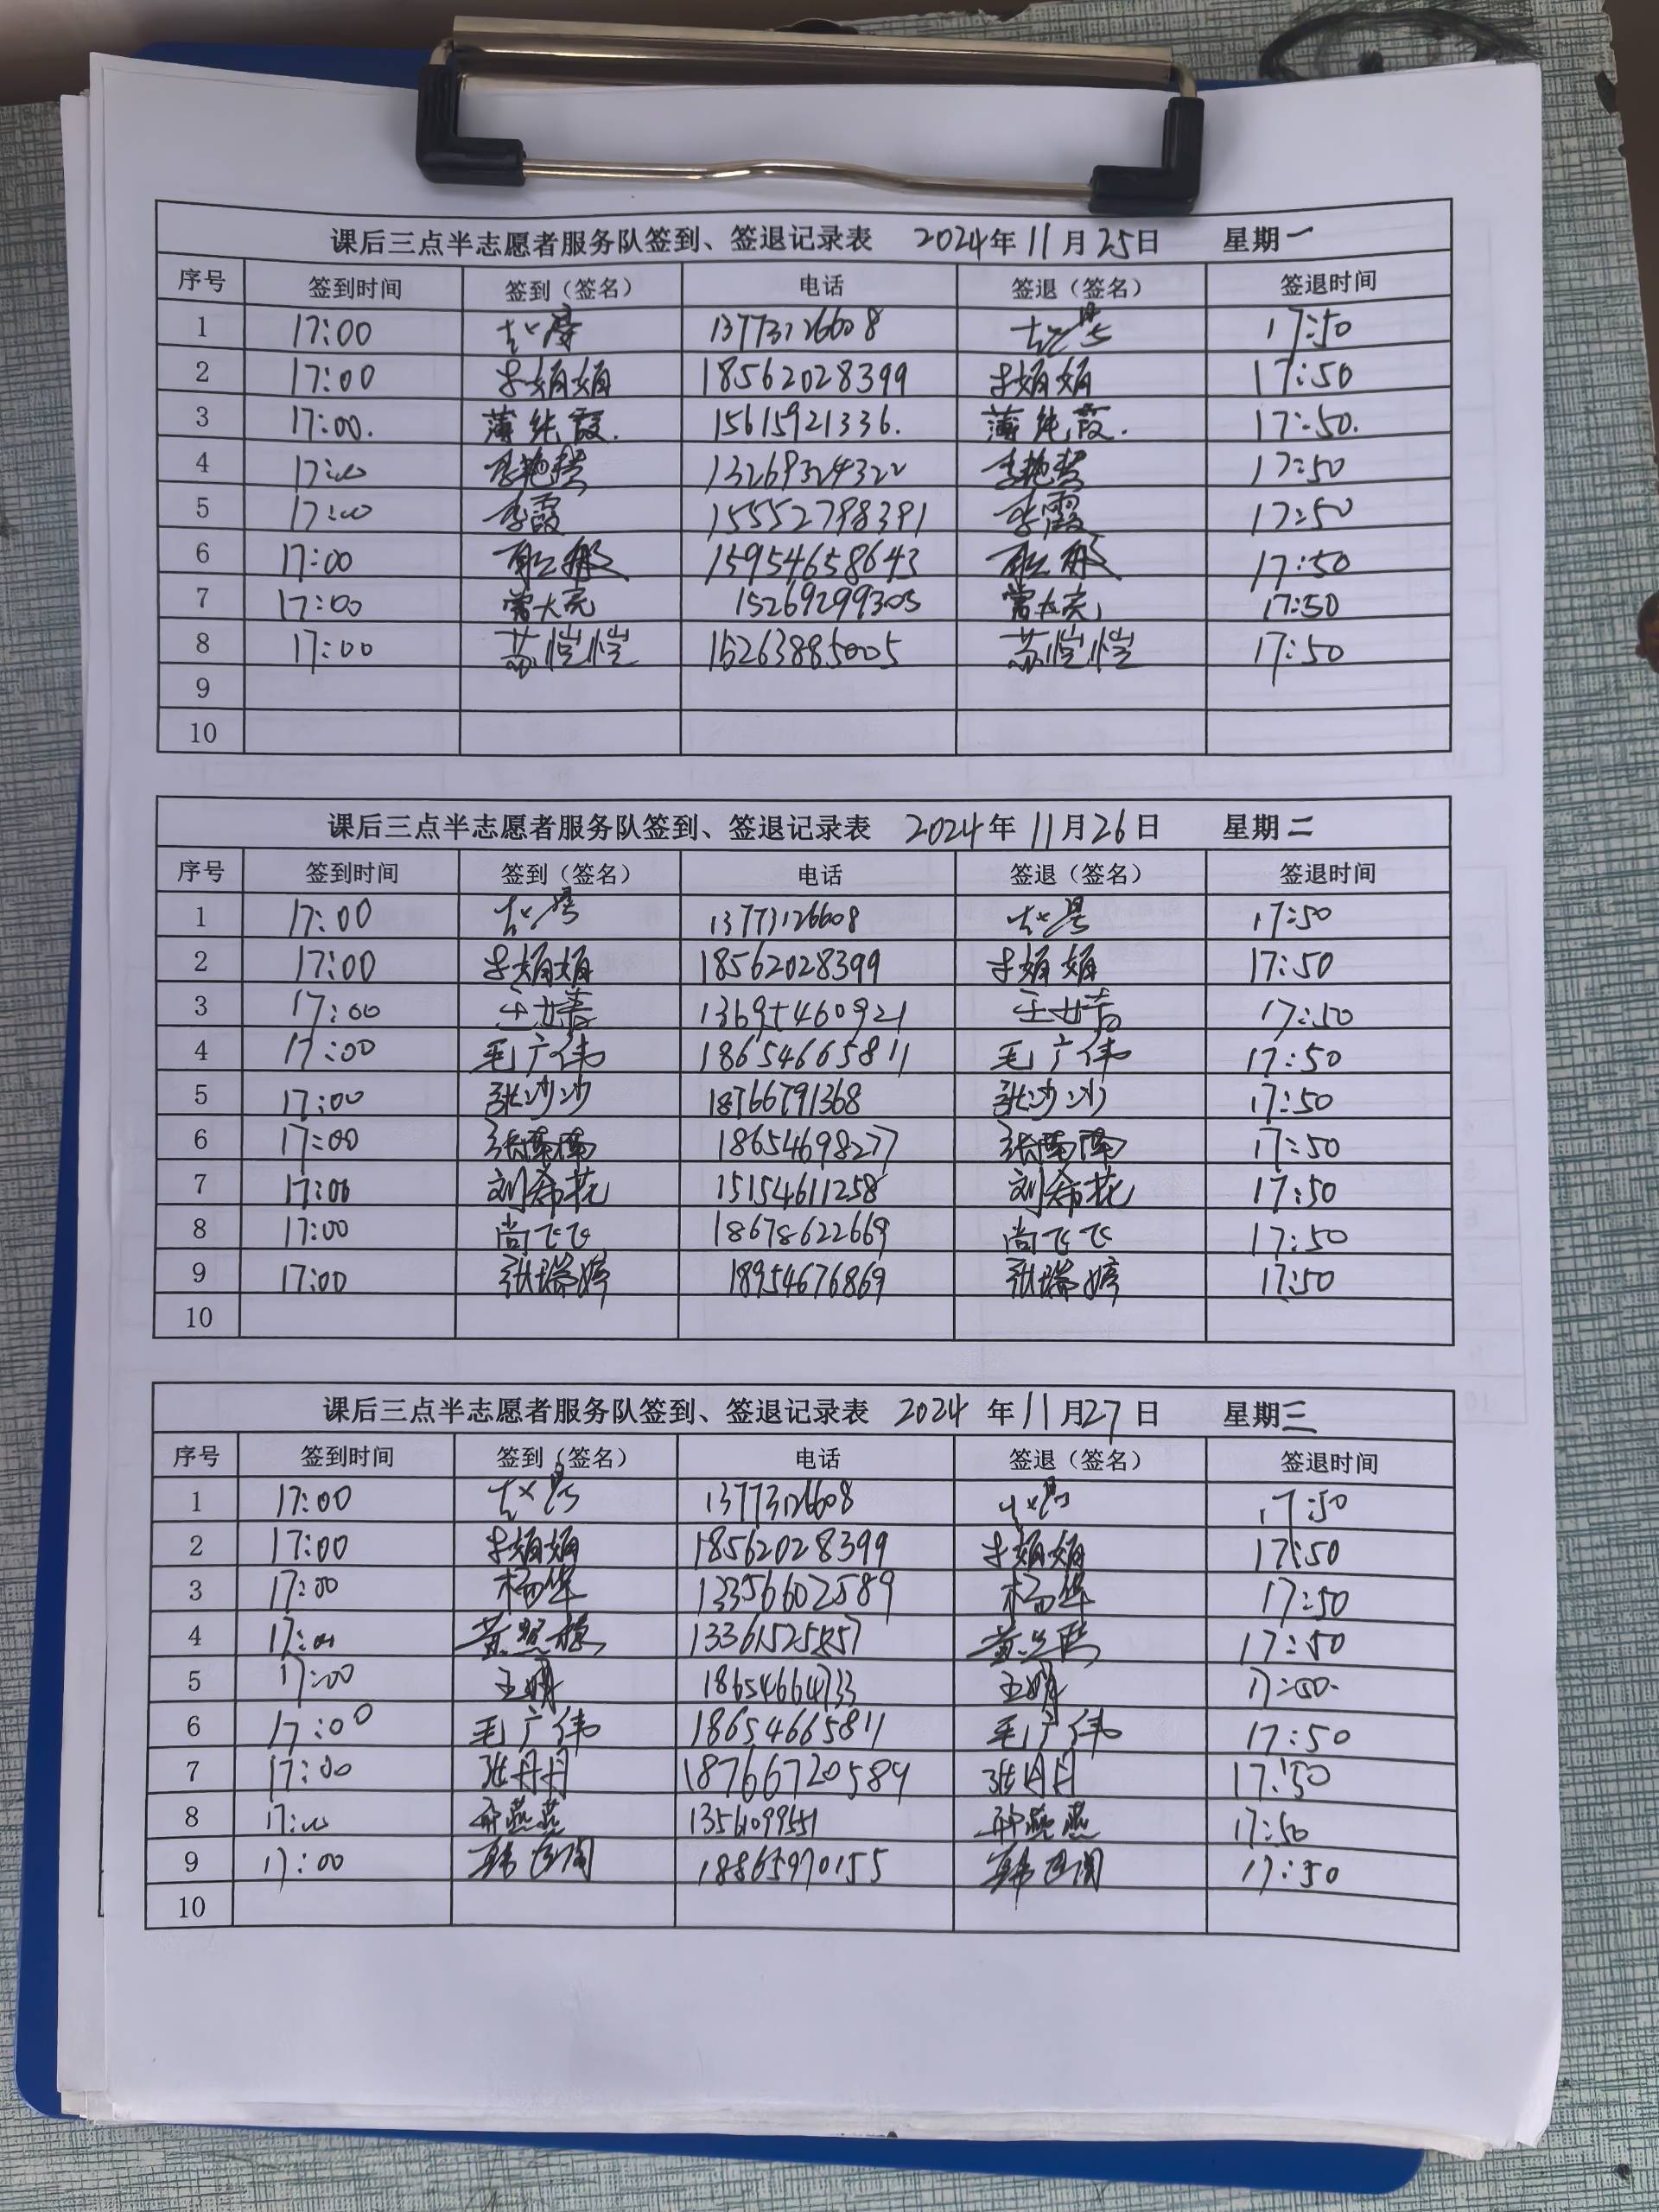 课后三点半志愿者服务队签到、签退记录表 2024年11月25日 星期一
序号 签到时间 签到（签名） 电话 签退（签名） 签退时间
1 17:00 13773126608 17:50
2 17:00 娟娟 18562028399 娟娟 17:50
3 17:00. 薄纯霞. 15615921336. 薄纯霞. 17:50.
4 17:00 李艳 13269324322 李艳 17:50
5 17:00 李霞 15552798391 李霞 17:50
6 17:00 15954658643 17:50
7 17:00 曾大亮 15269299305 曾大亮 17:50
8 17:00 苏恺恺 15263885005 苏恺恺 17:50
9
10
课后三点半志愿者服务队签到、签退记录表 2024年11月26日 星期二
序号 签到时间 签到（签名） 电话 签退（签名） 签退时间
1 17:00 13773126608 17:50
2 17:00 娟娟 18562028399 娟娟 17:50
3 17:00 王 13695460921 王 17:50
4 17:00 毛广伟 18654665811 毛广伟 17:50
5 17:00 张沙沙 18766791368 张沙沙 17:50
6 17:00 张南南 18654698277 张南南 17:50
7 17:00 刘希花 15154611258 刘希花 17:50
8 17:00 尚飞飞 18678622669 尚飞飞 17:50
9 17:00 张瑞婷 18954676869 张瑞婷 17:50
10
课后三点半志愿者服务队签到、签退记录表 2024年11月27日 星期三
序号 签到时间 签到（签名） 电话 签退（签名） 签退时间
1 17:00 13773126608 17:50
2 17:00 娟娟 18562028399 娟娟 17:50
3 17:00 杨华 13356602589 杨华 17:50
4 17:00 黄 13361525857 黄 17:50
5 17:00 王 18654664733 王 17:50.
6 17:00 毛广伟 18654665811 毛广伟 17:50
7 17:00 张丹丹 18766720589 张丹丹 17:50
8 17:00 燕燕 13561099551 燕燕 17:50
9 17:00 韩 18865970155 韩 17:50
10